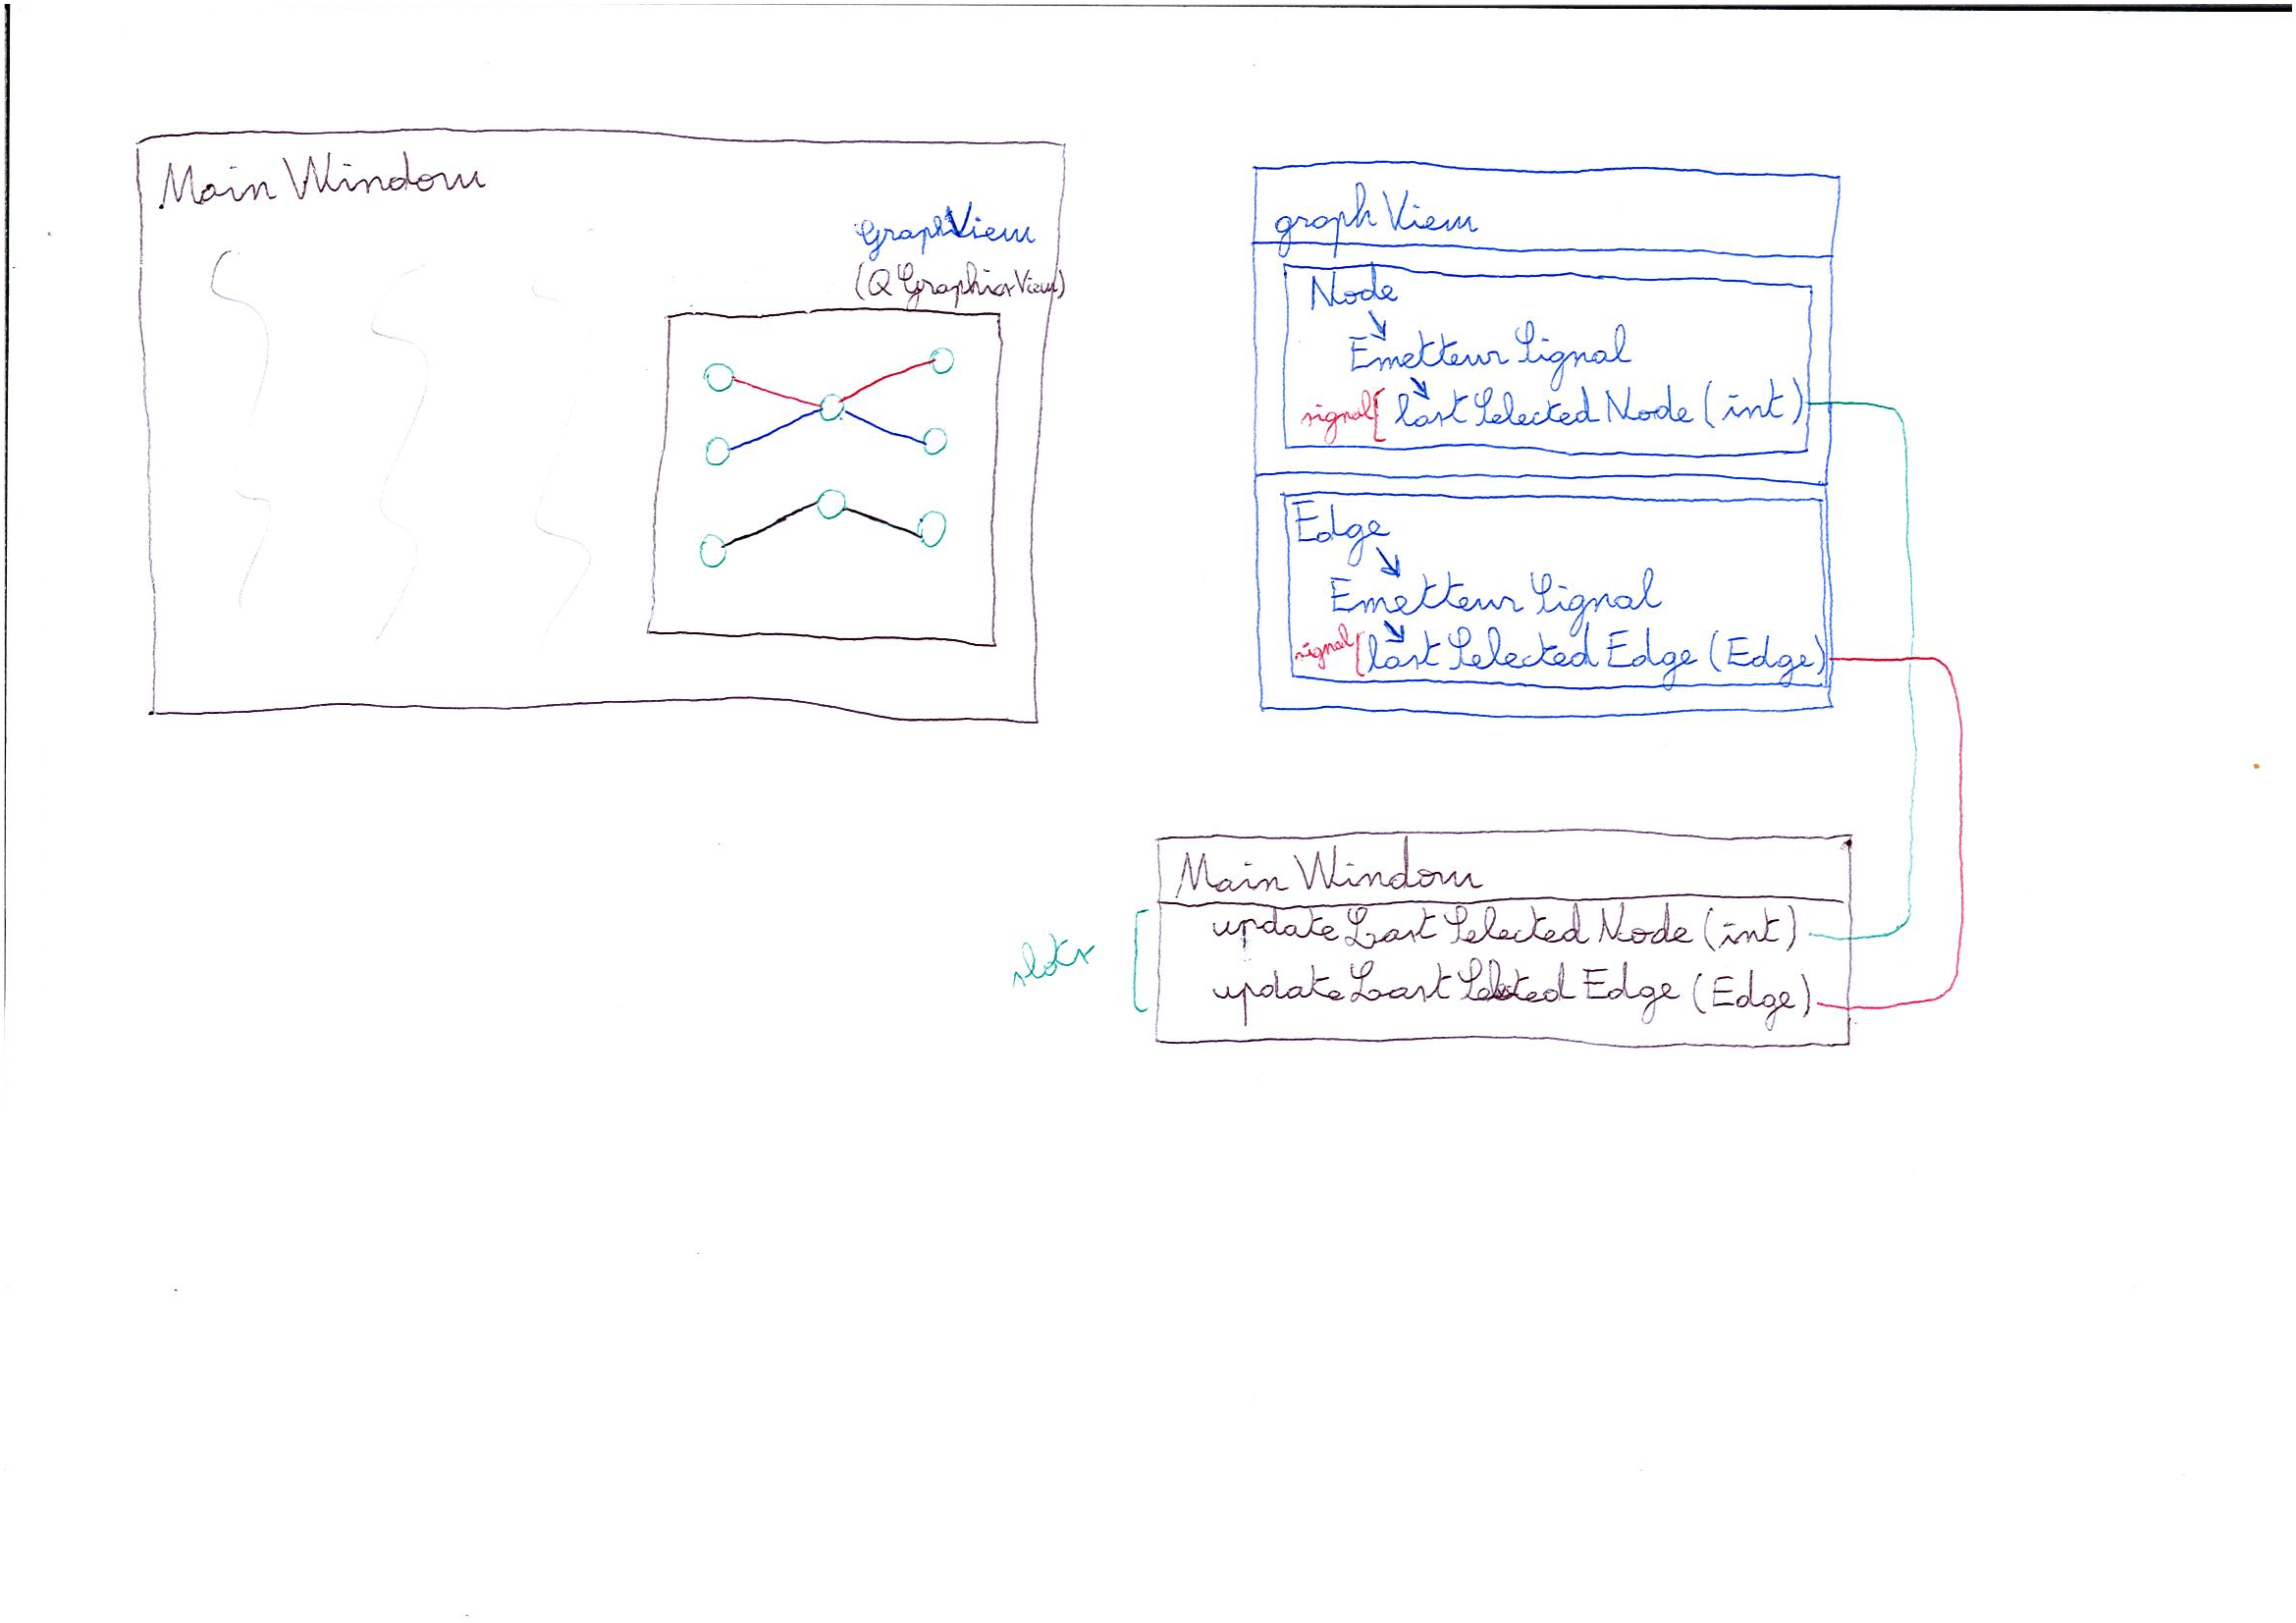 MainWindow
GraphView
(QGraphicsView)
graphView
Node
Emetteur Signal
signal[ lastSelectedNode (int)
Edge
Emetteur Signal
signal[ lastSelectedEdge (Edge)
MainWindow
slots
updateLastSelectedNode (int)
updateLastSelectedEdge (Edge)